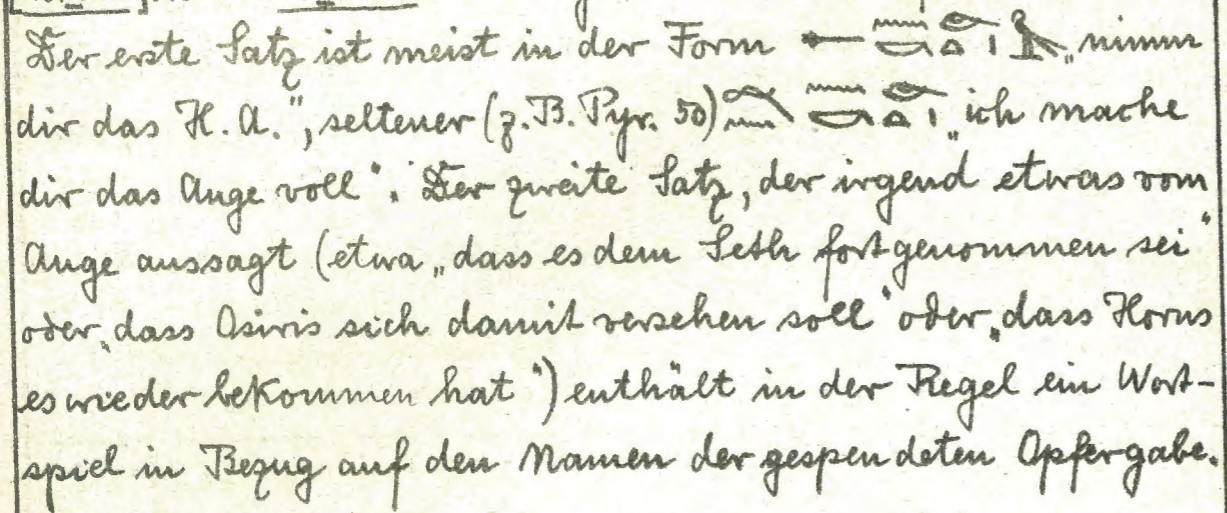 Der erste Satz ist meist in der Form 𓈖𓎡𓁹𓏏𓏤𓅃 „nimm
dir das H. A.", seltener (z. B. Pyr. 50) 𓈖𓎡𓁹𓏏𓏤 „ich mache
dir das Auge voll". Der zweite Satz, der irgend etwas vom
Auge aussagt (etwa „dass es dem Seth fortgenommen sei"
oder „dass Osiris sich damit versehen soll" oder „dass Horus
es wieder bekommen hat") enthält in der Regel ein Wort-
spiel in Bezug auf den Namen der gespendeten Opfergabe.